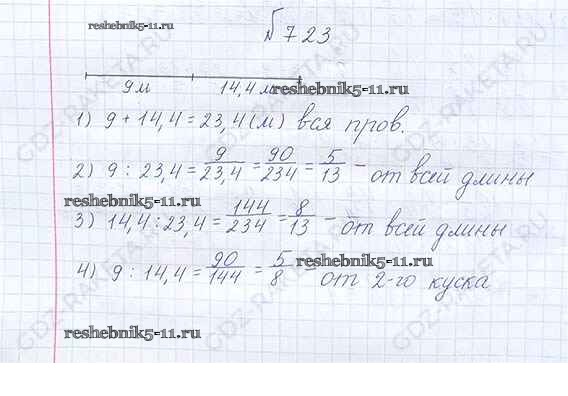 reshebnik5-11.ru
№ 723
9м 14,4 м
reshebnik5-11.ru
1) 9 + 14,4 = 23,4 (м) вся пров.
2) 9 : 23,4 = 9/23,4 = 90/234 = 5/13 – от всей длины
reshebnik5-11.ru
3) 14,4 : 23,4 = 144/234 = 8/13 – от всей длины
reshebnik5-11.ru
4) 9 : 14,4 = 90/144 = 5/8 – от 2-го куска
reshebnik5-11.ru
GDZ-RAKETA.RU